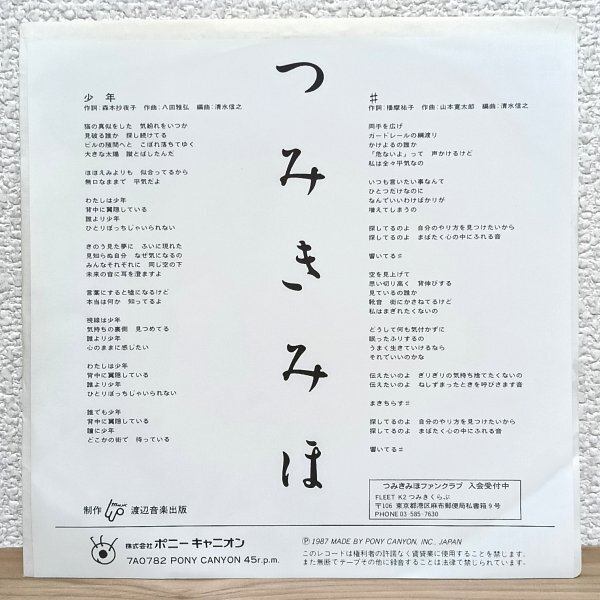 つみきみほ
少年
作詞:森本抄夜子 作曲:八田雅弘 編曲:清水信之
猫の真似をした 気紛れをいつか
見破る誰か 探し続けてる
ビルの隙間へと こぼれ落ちてゆく
大きな太陽 蹴とばしたんだ
ほほえみよりも 似合ってるから
無口なままで 平気だよ
わたしは少年
背中に翼隠している
誰より少年
ひとりぼっちじゃいられない
きのう見た夢に ふいに現れた
見知らぬ自分 なぜ気になるの
みんなそれぞれに 同じ空の下
未来の音に耳を澄ますよ
言葉にすると嘘になるけど
本当は何か 知ってるよ
視線は少年
気持ちの裏側 見つめてる
誰より少年
心のままに感じたい
わたしは少年
背中に翼隠している
誰より少年
ひとりぼっちじゃいられない
誰でも少年
背中に翼隠している
瞳に少年
どこかの街で 待っている
♯
作詞:播摩祐子 作曲:山本寛太郎 編曲:清水信之
両手を広げ
ガードレールの綱渡り
かけよる の誰か
「危ないよ」って 声かけるけど
私は全々平気なの
いつも言いたい事なんて
ひとつだけなのに
なんでいいわけばかりが
増えてしまうの
探してるのよ 自分のやり方を見つけたいから
探してるのよ まばたく心の中にふれる音
響いてる♯
空を見上げて
思い切り高く 背伸びする
見ている の誰か
靴音 街にかさねてるけど
私はまぎれたくないの
どうして何も気付かずに
眠ったふりするの
うまく生きていけるなら
それでいいのかな
伝えたいのよ ぎりぎりの気持ち捨てたくないの
伝えたいのよ ねしずまったときを呼びさます音
まきちらす♯
探してるのよ 自分のやり方を見つけたいから
探してるのよ まばたく心の中にふれる音
響いてる♯
つみきみほファンクラブ 入会受付中
FLEET K2 つみきくらぶ
〒106 東京都港区麻布郵便局私書箱9号
PHONE 03-585-7630
制作 渡辺音楽出版
株式会社ポニーキャニオン
7A0782 PONY CANYON 45r.p.m.
Ⓟ1987 MADE BY PONY CANYON, INC., JAPAN
このレコードは権利者の許諾なく賃貸業に使用することを禁じます。
また無断でテープその他に録音することは法律で禁じられています。